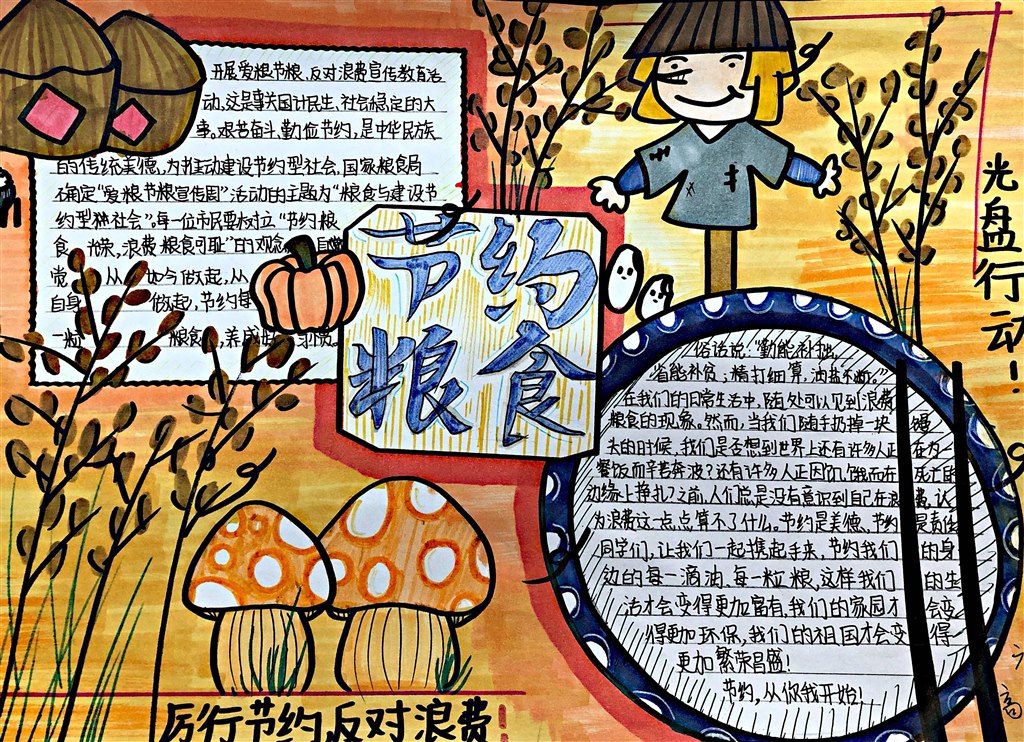 开展爱粮节粮、反对浪费宣传教育活
动,这是事关国计民生、社会稳定的大
事。艰苦奋斗、勤俭节约,是中华民族
的传统美德,为推动建设节约型社会,国家粮食局
确定“爱粮节粮宣传周”活动的主题为“粮食与建设节
约型社会”。每一位市民要树立“节约粮
食 光荣,浪费粮食可耻”的观念 自觉
觉 从 如今做起,从
自身 做起,节约每
一粒 粮食,养成好 习惯
节约
粮食
光盘行动!
俗话说:“勤能补拙,
省能补贫;精打细算,油盐不断。”
在我们的日常生活中,随处可以见到浪费
粮食的现象。然而,当我们随手扔掉一块 馒
头的时候,我们是否想到世界上还有许多人正在为一
餐饭而辛苦奔波?还有许多人正因饥饿而在 死亡的
边缘上挣扎?之前,人们总是没有意识到自己在浪费,认
为浪费这一点点算不了什么。节约是美德、节约 是责任
同学们,让我们一起携起手来,节约我们 的身
边的每一滴油、每一粒粮,这样我们 的生
活才会变得更加富有,我们的家园才 会变
得更加环保,我们的祖国才会变 得
更加繁荣昌盛!
节约,从你我开始!
厉行节约反对浪费!